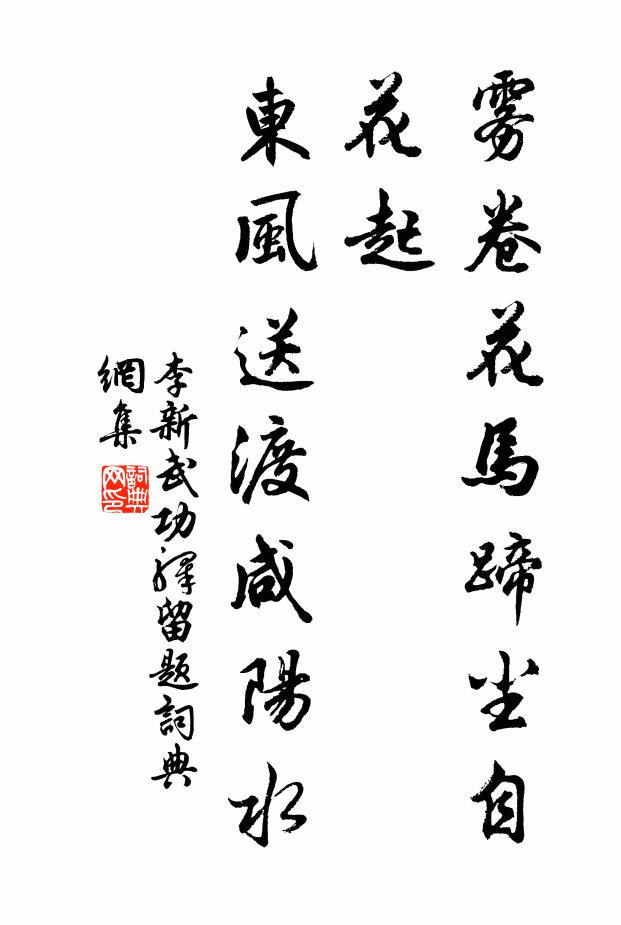 雾卷花馬蹄尘自
花起
東風送渡咸陽水
李新武功驛留題詞典
網集
詞典
网印